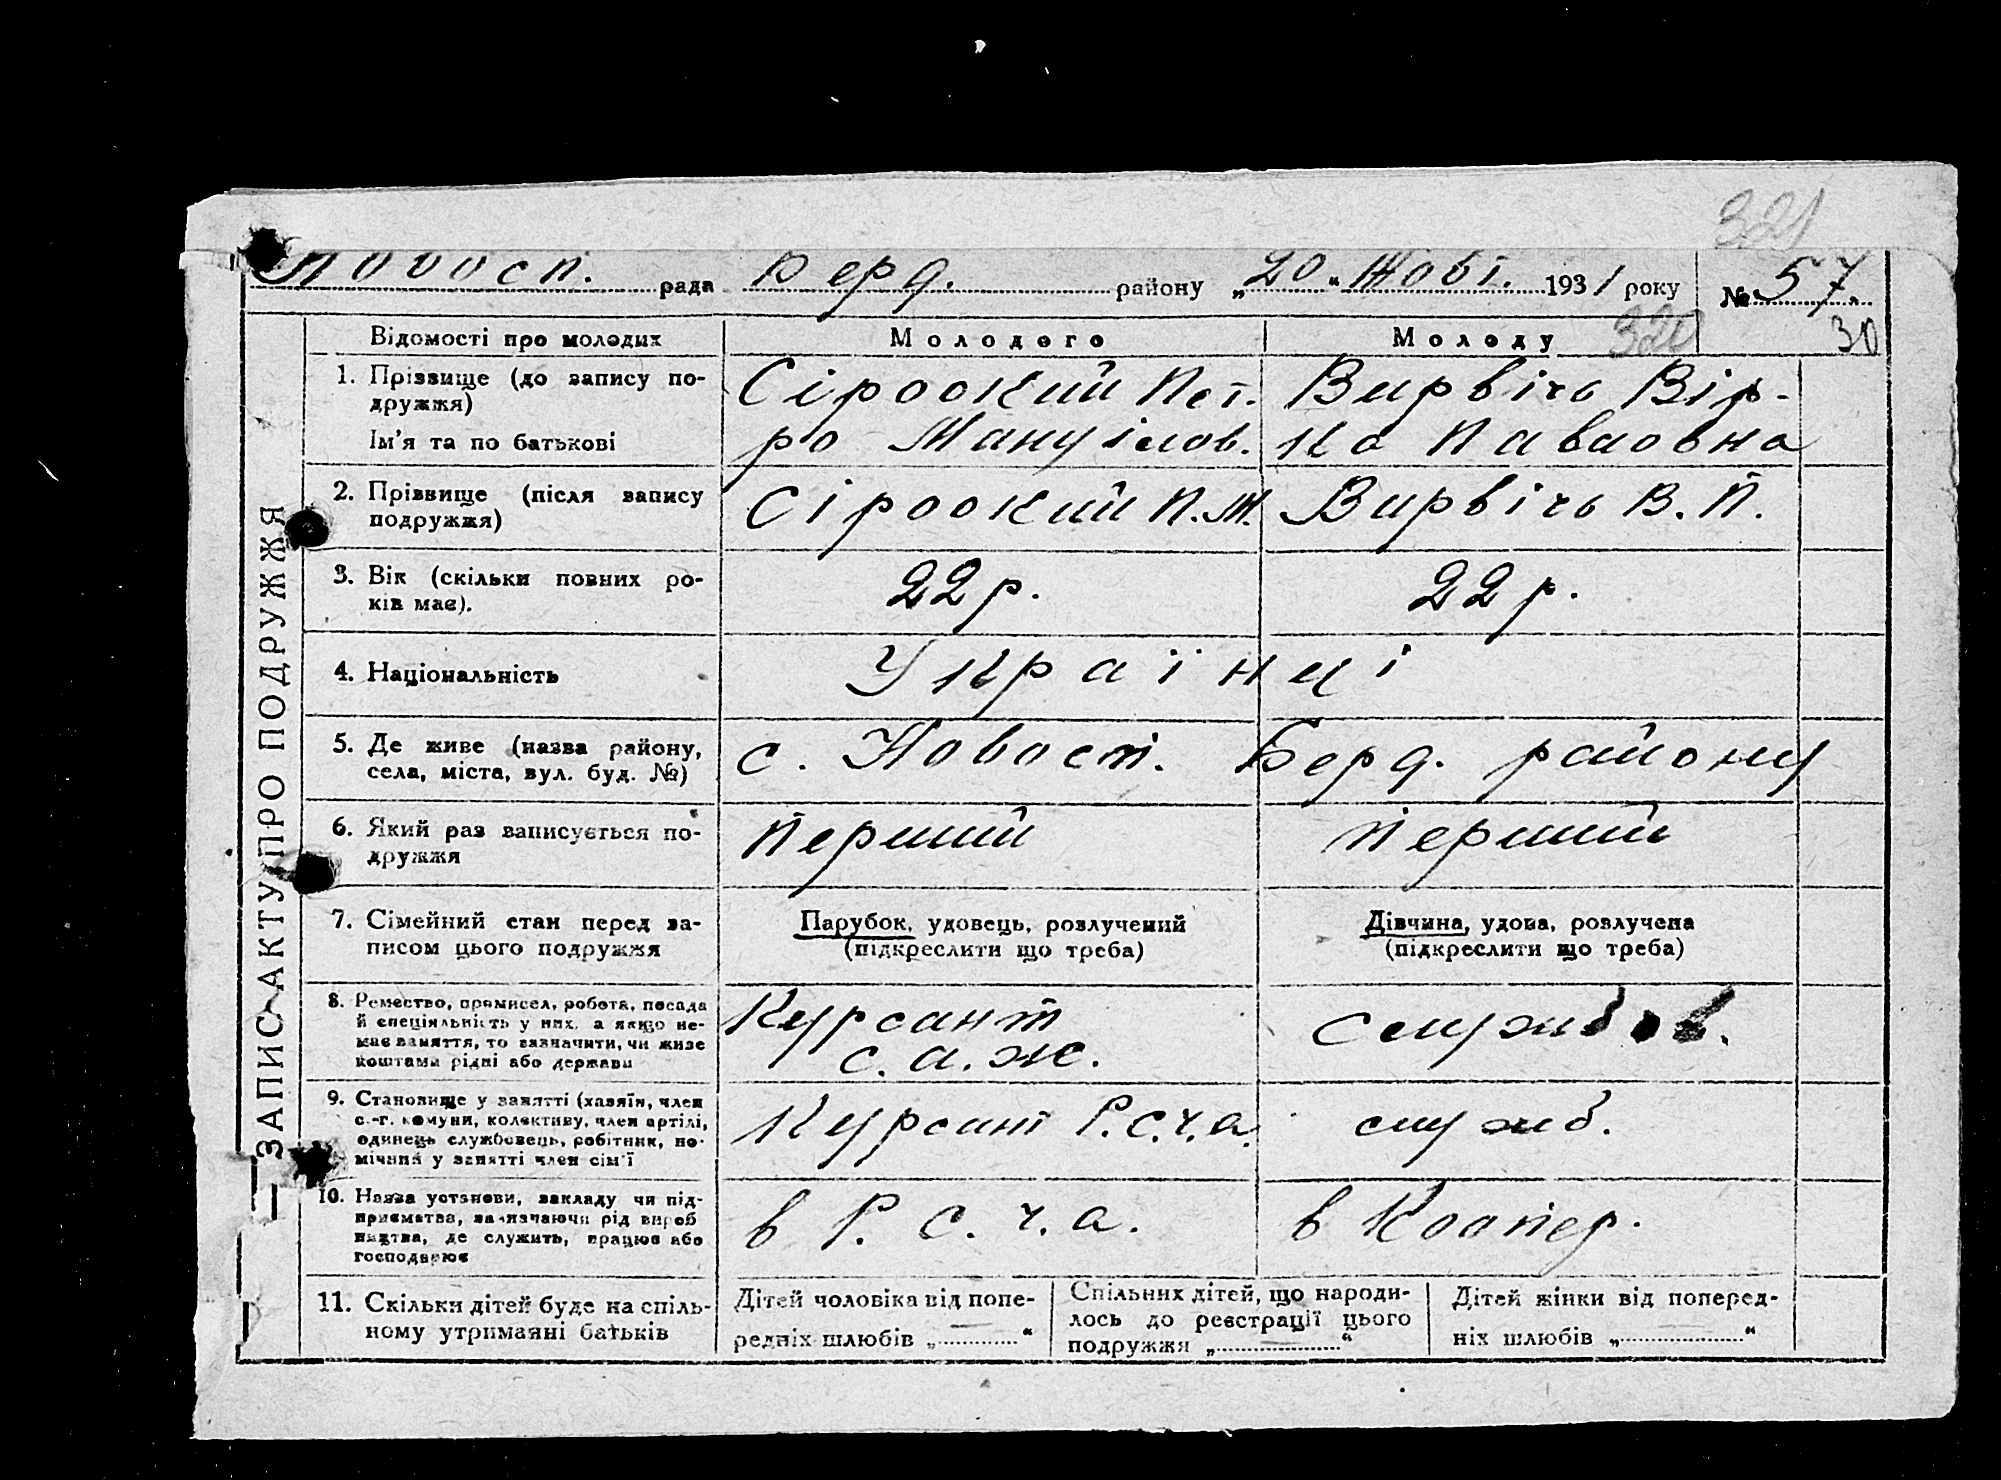 321
Новосп. рада Берд. району „20“ Жовт. 1931 року № 57.
320 30
ЗАПИС АКТУ ПРО ПОДРУЖЖЯ
Відомості про молодих Молодого Молоду
1. Прізвище (до запису по- Сіроокий Пет. Вирвічь Вір-
дружжя)
Ім'я та по батькові ро Мануілов. ка Павловна
2. Прізвище (після запису Сіроокий П.М. Вирвічь В.П.
подружжя)
3. Вік (скільки повних ро- 22 р. 22 р.
ків має).
4. Національність Українці
5. Де живе (назва району, с. Новосп. Берд. району
села, міста, вул. буд. №)
6. Який раз записується по- Перший Перший
дружжя
7. Сімейний стан перед за- Парубок, удовець, розлучений Дівчина, удова, розлучена
писом цього подружжя (підкреслити що треба) (підкреслити що треба)
8. Ремество, промисел, робота, посада Курсант
й спеціяльність у них, а якщо не-
має заняття, то зазначити, чи живе с.а.ж.
коштами рідні або держави
9. Становище у занятті (хазяїн, член
с.-г. комуни, колективу, член артілі, Курсант Р.С.Ч.А. служб.
одинець службовець, робітник, по-
мічний у занятті член сім'ї
10. Назва установи, закладу чи під- в Р.С.Ч.А. в Коопер.
приємства, зазначаючи рід вироб
ництва, де служить, працює або
господарює
11. Скільки дітей буде на спіль- Дітей чоловіка від попе- Спільних дітей, що народи- Дітей жінки від поперед-
ному утриманні батьків редніх шлюбів „—“ лось до реєстрації цього ніх шлюбів „—“
подружжя „—“